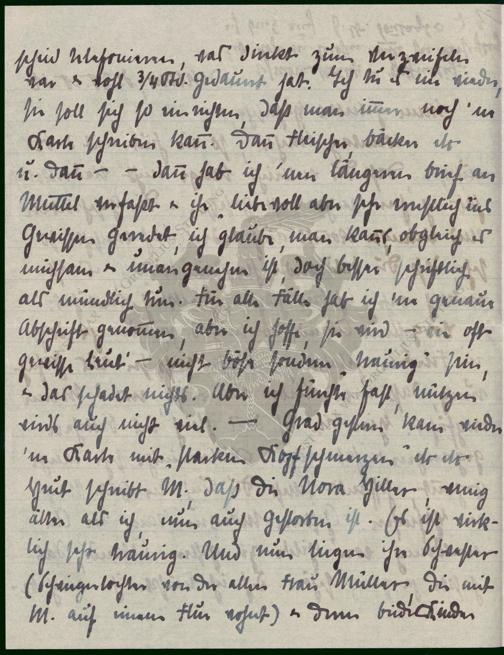 scheid telefonieren, was direkt zum verzweifeln
war & wohl 3/4 Std. gedauert hat. Ich tu es nie wieder,
sie soll sich so einrichten, daß man immer noch 'ne
Karte schreiben kann. Dann Fleischer Bäcker etc
u. dann – – dann hab ich 'nen längeren Brief an
Muttel verfaßt & ihr "liebevoll aber sehr ernstlich" ins
Gewissen geredet, ich glaube, man kann's, obgleich es
mühsam & unangenehm ist, doch besser schriftlich
als mündlich tun. Für alle Fälle hab ich 'ne genaue
Abschrift genommen, aber ich hoffe, sie wird – wie oft
gewisse Leut' – nicht böse sondern "traurig" sein,
& das schadet nichts. Aber ich fürchte fast, nützen
wirds auch nicht viel. — Grad gestern kam wieder
'ne Karte mit "starken Kopfschmerzen" etc etc
Heut schreibt M., daß die Nora Hiller, wenig
älter als ich, nun auch gestorben ist. Es ist wirk-
lich sehr traurig. Und nun liegen ihre Schwester
(Schwiegertochter von der alten Frau Müller, die mit
M. auf einem Flur wohnt) & deren beide Kinder